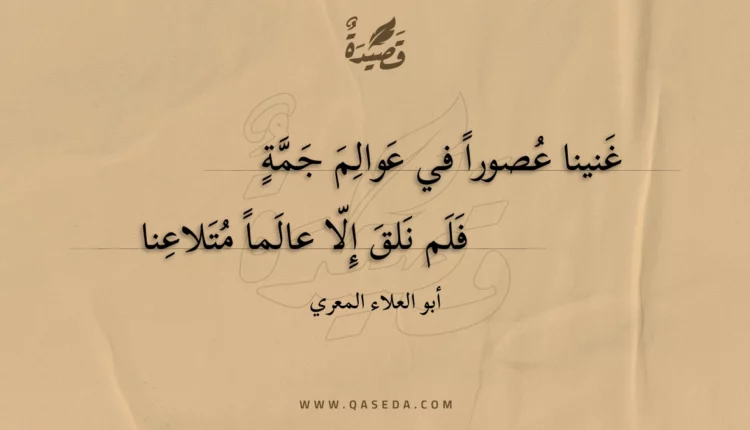 قَصِيدَةٌ
غَنينا عُصوراً في عَوالِمَ جَمَّةٍ
فَلَم نَلقَ إِلّا عالَماً مُتَلاعِنا
أبو العلاء المعري
WWW.QASEDA.COM